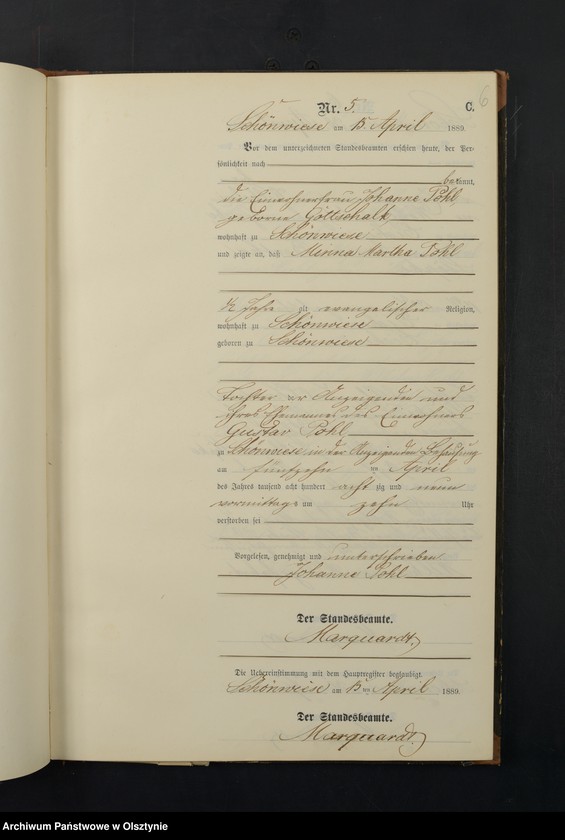 6
Nr. 5. C.
Schönwiese am 15. April 1889.
Vor dem unterzeichneten Standesbeamten erschien heute, der Per-
sönlichkeit nach
bekannt,
die Einwohnerfrau Johanne Pohl,
geborne Gottschalk,
wohnhaft zu Schönwiese
und zeigte an, daß Minna Martha Pohl
½ Jahr alt evangelischer Religion,
wohnhaft zu Schönwiese
geboren zu Schönwiese
Tochter der Anzeigenden und
ihres Ehemannes des Einwohners
Gustav Pohl
zu Schönwiese in der Anzeigenden Behausung
am fünfzehn ten April
des Jahres tausend acht hundert acht zig und neun
vormittags um zehn Uhr
verstorben sei
Vorgelesen, genehmigt und unterschrieben
Johanne Pohl
Der Standesbeamte.
Marquardt
Die Uebereinstimmung mit dem Hauptregister beglaubigt.
Schönwiese am 15 ten April 1889.
Der Standesbeamte.
Marquardt
Archiwum Państwowe w Olsztynie